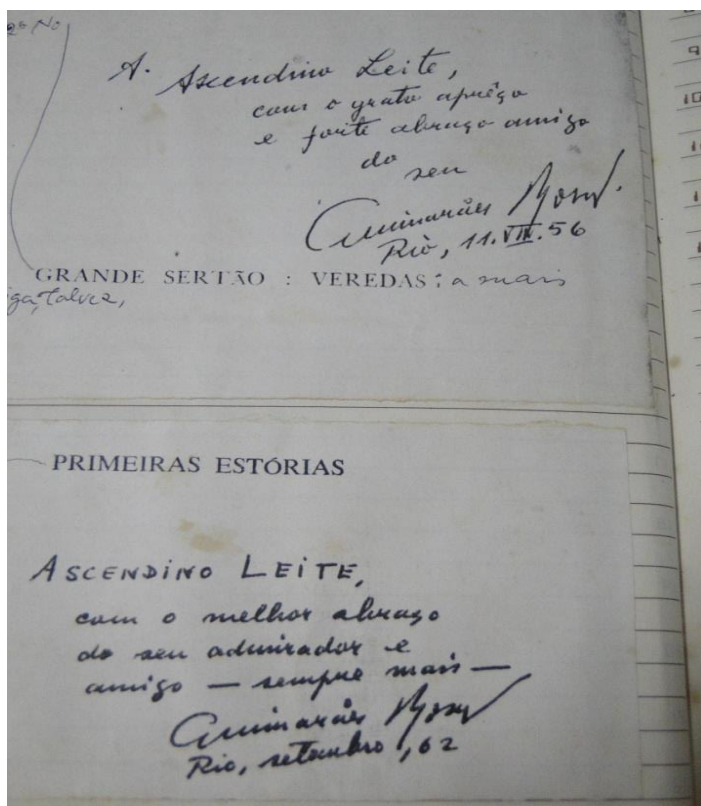 2º No
A. Ascendino Leite,
com o grato aprêço
e forte abraço amigo
do
seu
Guimarães Rosa.
Rio, 11.VIII.56
GRANDE SERTÃO : VEREDAS : a mais
iga, talvez,
PRIMEIRAS ESTÓRIAS
ASCENDINO LEITE,
com o melhor abraço
do seu admirador e
amigo — sempre mais —
Guimarães Rosa
Rio, setembro, 62
9
10